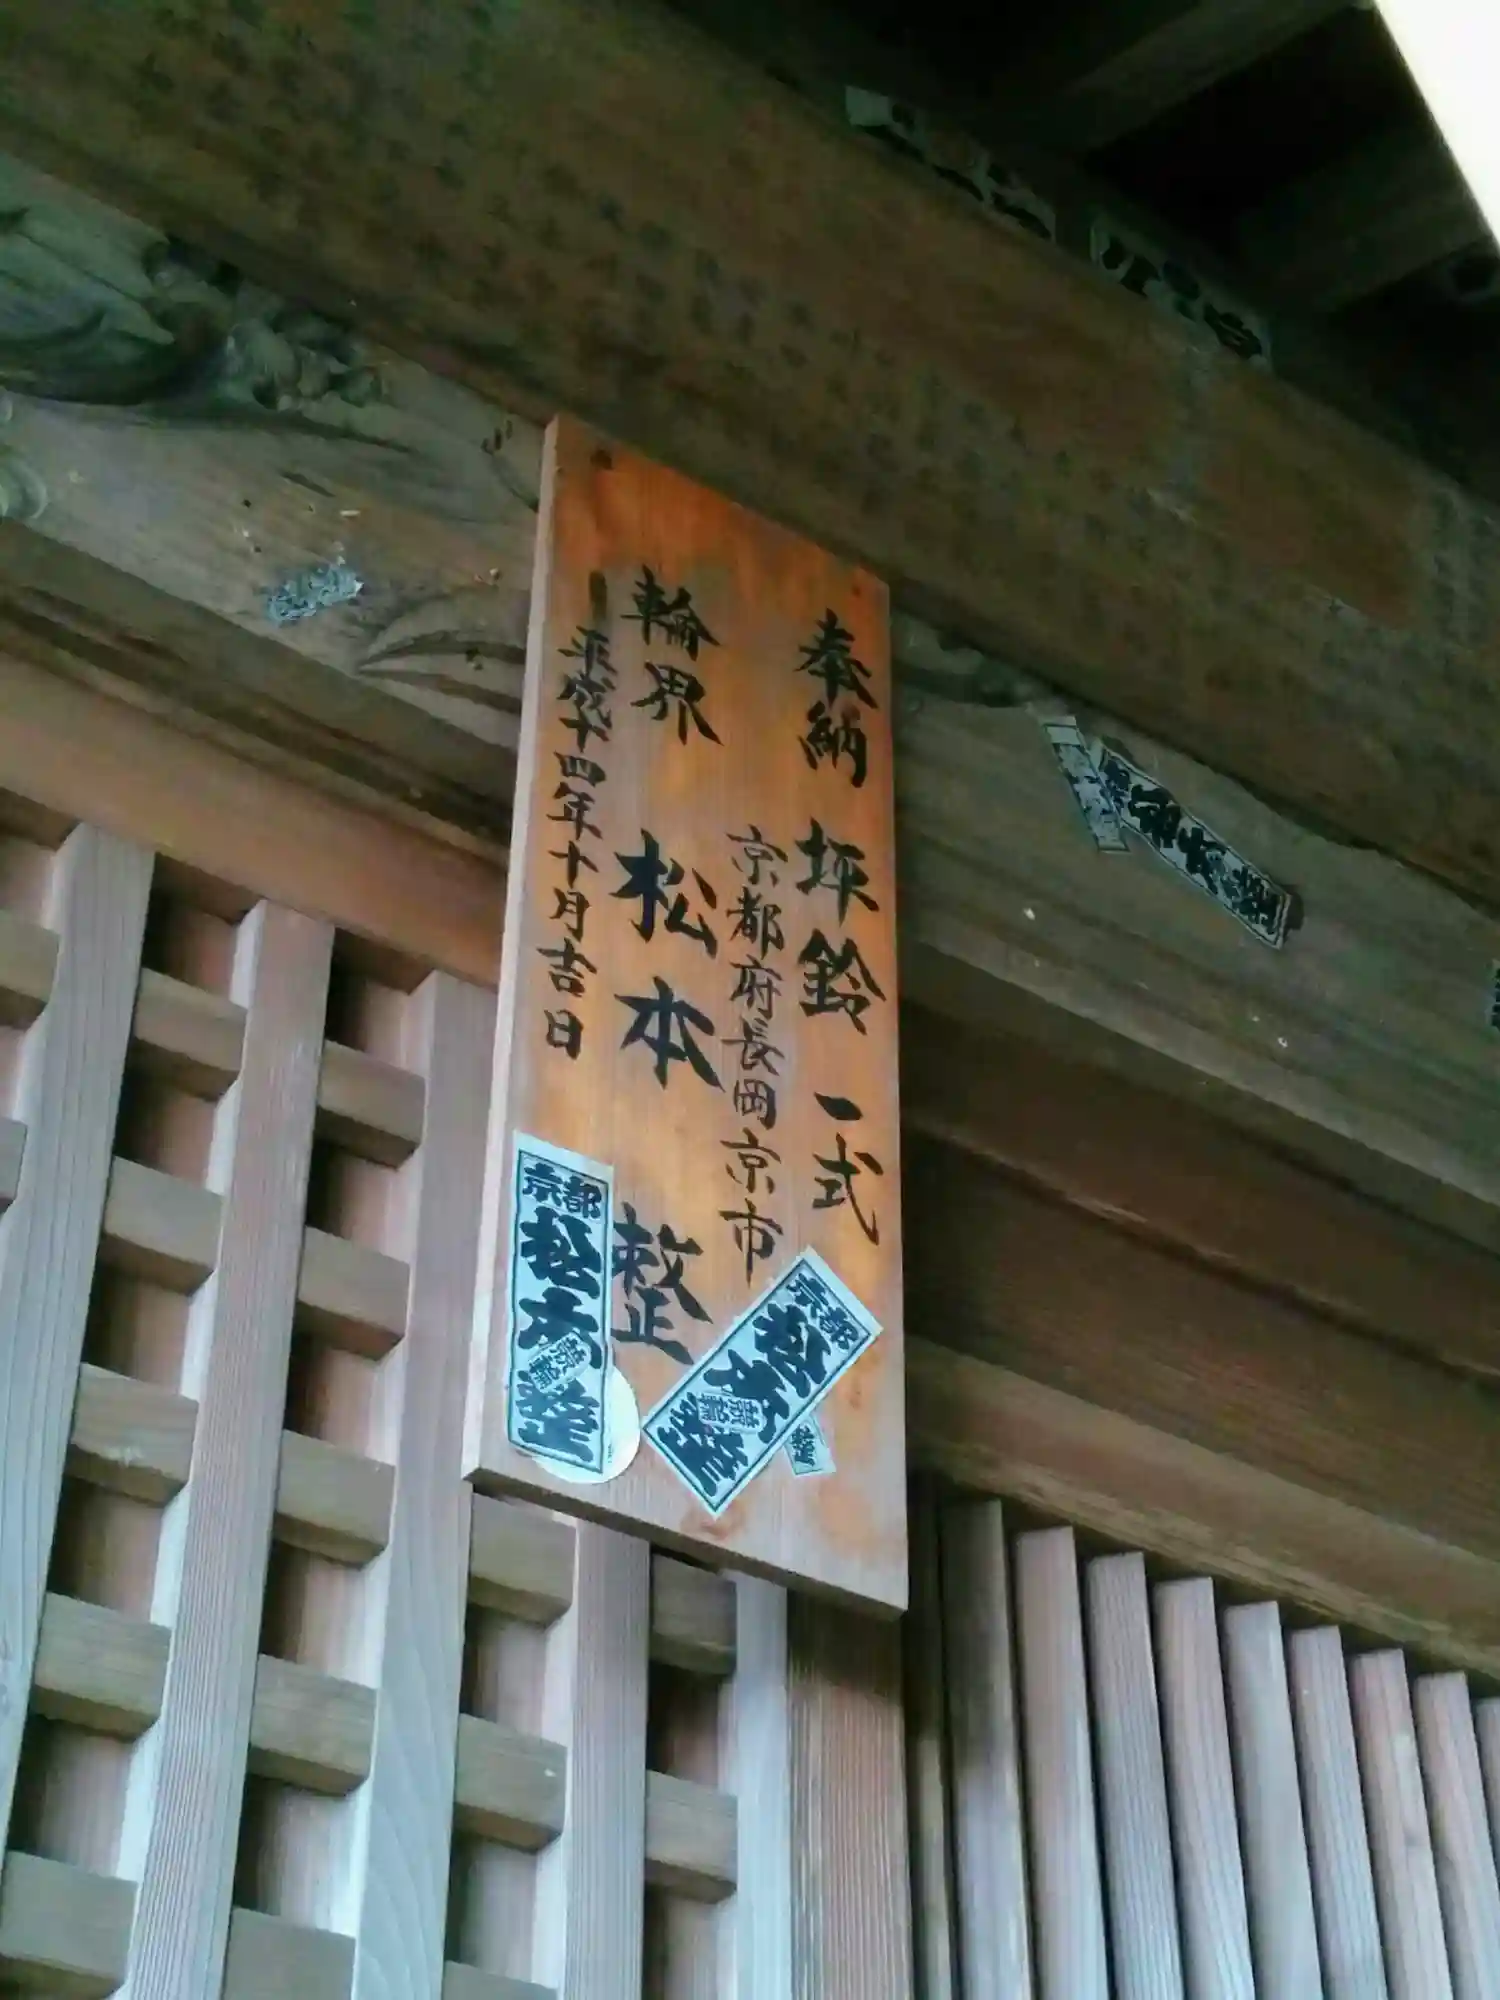 奉納 坪鈴 一式
京都府長岡京市
輪界 松本 整
平成十四年十月吉日
京都
松本
整
競輪
京都
松本
整
競輪